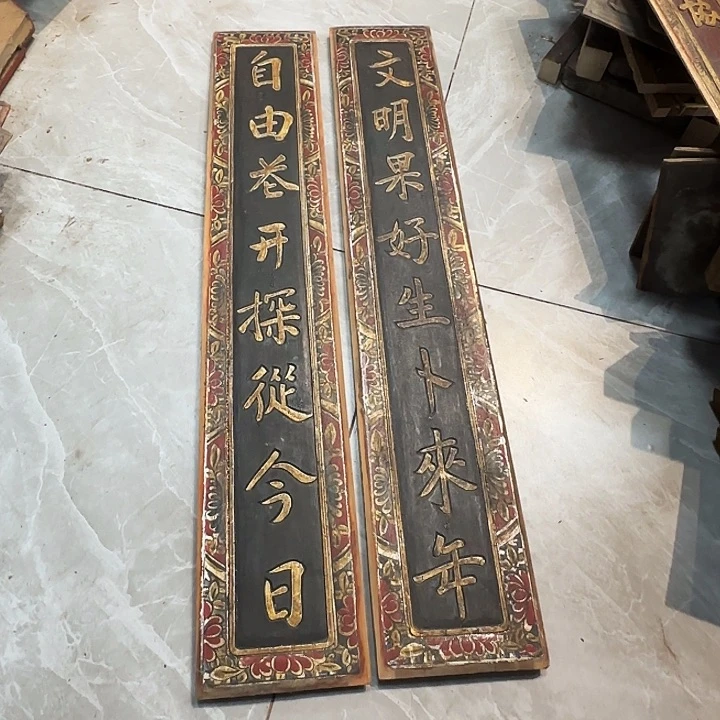 自由花开探從今日
文明果好生卜來年